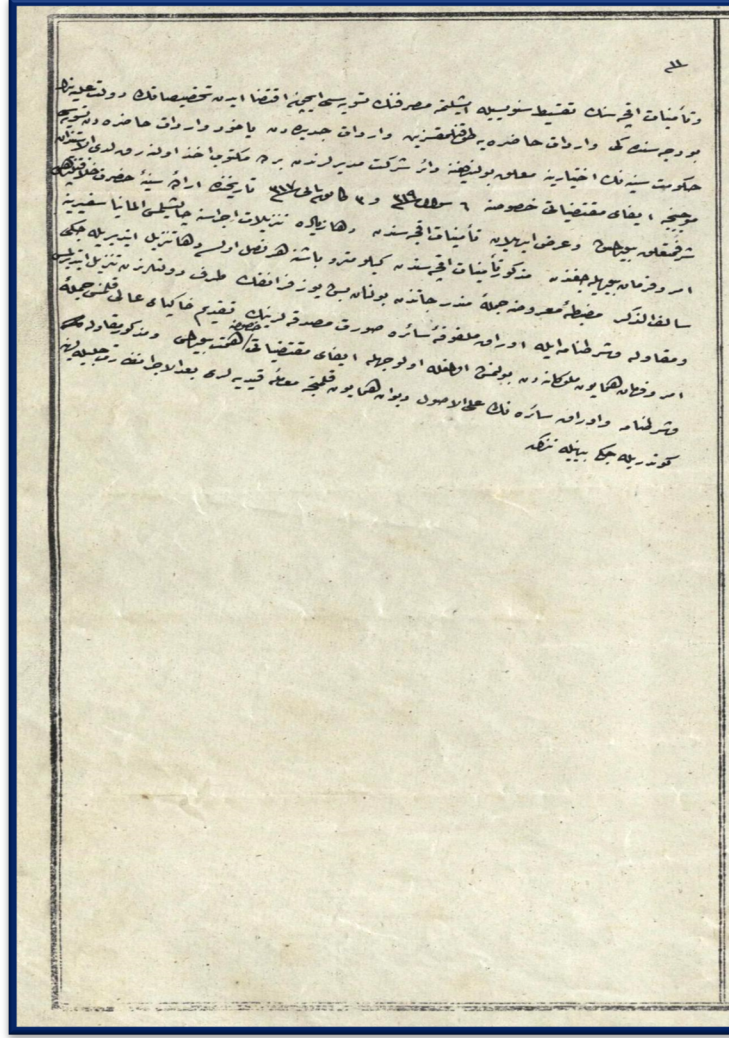 و تأمينات اقچه سنك تقسيط سنويسيله ايشلتمه مصرفنك تسويه سى ايچون اقتضا ايدن تخصيصاتك دولت عليه نك
بودجه سنده كى واردات حاضره يه طوقنلمقسزين واردات جديده دن ياخود واردات حاضره دن تسويه سى
حكومت سنيه نك اختيارينه معلق بولنديغنه دائر شركت مديرلرندن بر مكتوب اخذ اولنه رق لدى الاستيذان
موجبنجه ايفاى مقتضياتى خصوصنه ٦ شوال ٣١٩ و ٣ كانون ثانى ٣١٧ تاريخنده اراده سنيه حضرت خلافتپناهى
شرفمتعلق بيورلمش و عرض ايديلان تأمينات اقچه سندن دها زياده تنزيلات اجراسنه چاليشلمسى المانيا سفيرينه
امر و فرمان بيوريله جغندن مذكور تأمينات اقچه سندن كيلومترو باشنه هر نصل اولسه دها تنزيل ايتديريله جكى
سالف الذكر مضبطۀ معروضه جملۀ مندرجاتندن بولنان بش يوز فرانقك طرف دولتلرندن تنزيل ايتديرلمسى
و مقاوله و شرطنامه ايله اوراق ملفوفۀ سائره صورت مصدقه لرينك تقديم خاكپاى عالى قلنمسى جملۀ
امر و فرمان همايون ملوكانه دن بولنمش اولمغله اولوجهله ايفاى مقتضياتى خصوصنه همت بيورلمسى و مذكور مقاوله
و شرطنامه و اوراق سائره نك على الاصول ديوان همايون قلمنجه معاملۀ قيديه لرى بعد الاجرا
كوندريله جكى بيانيله تذكره